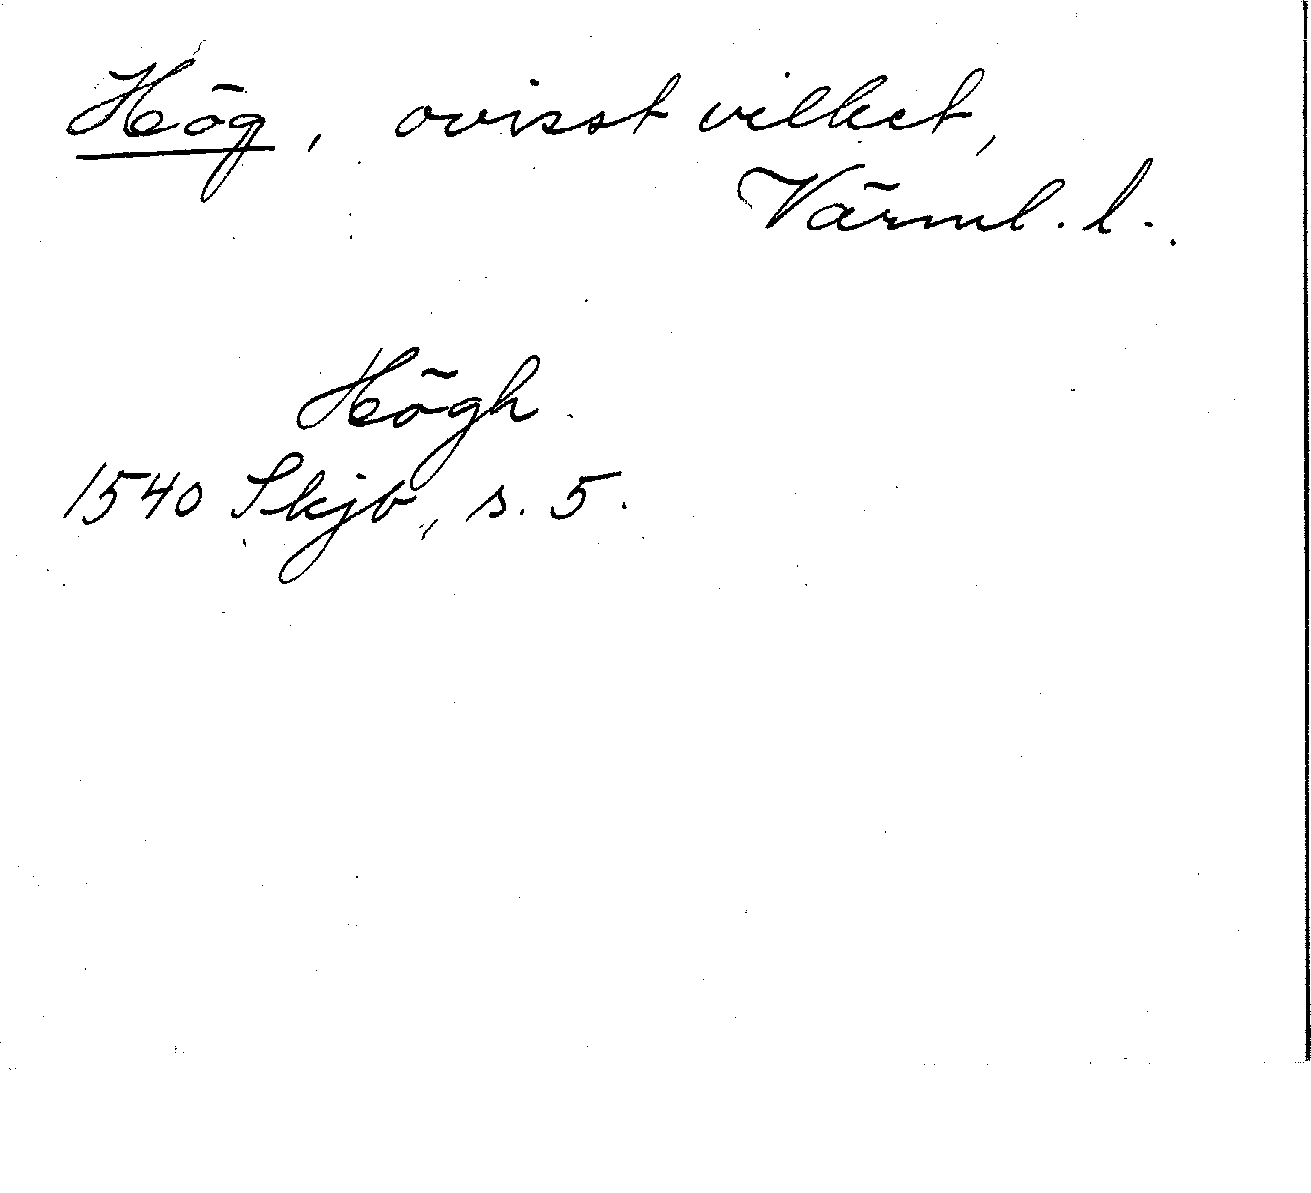 Hög, ovisst vilket,
Värml. l.
Högh.
1540 Skjb, s. 5.